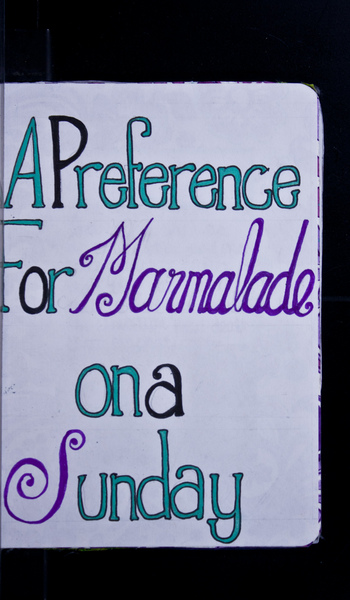 A Preference
For Marmalade
on a
Sunday